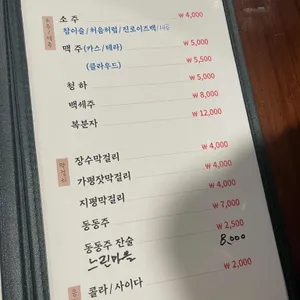 소주 ₩ 4,000
참이슬/처음처럼/진로이즈백/새로
맥주 (카스/테라) ₩ 5,000
(클라우드) ₩ 5,500
청하 ₩ 5,000
백세주 ₩ 8,000
복분자 ₩ 12,000
막걸리
장수막걸리 ₩ 4,000
가평잣막걸리 ₩ 4,000
지평막걸리 ₩ 4,000
동동주 ₩ 7,000
동동주 잔술 ₩ 2,500
느린마을 8,000
콜라/사이다 ₩ 2,000